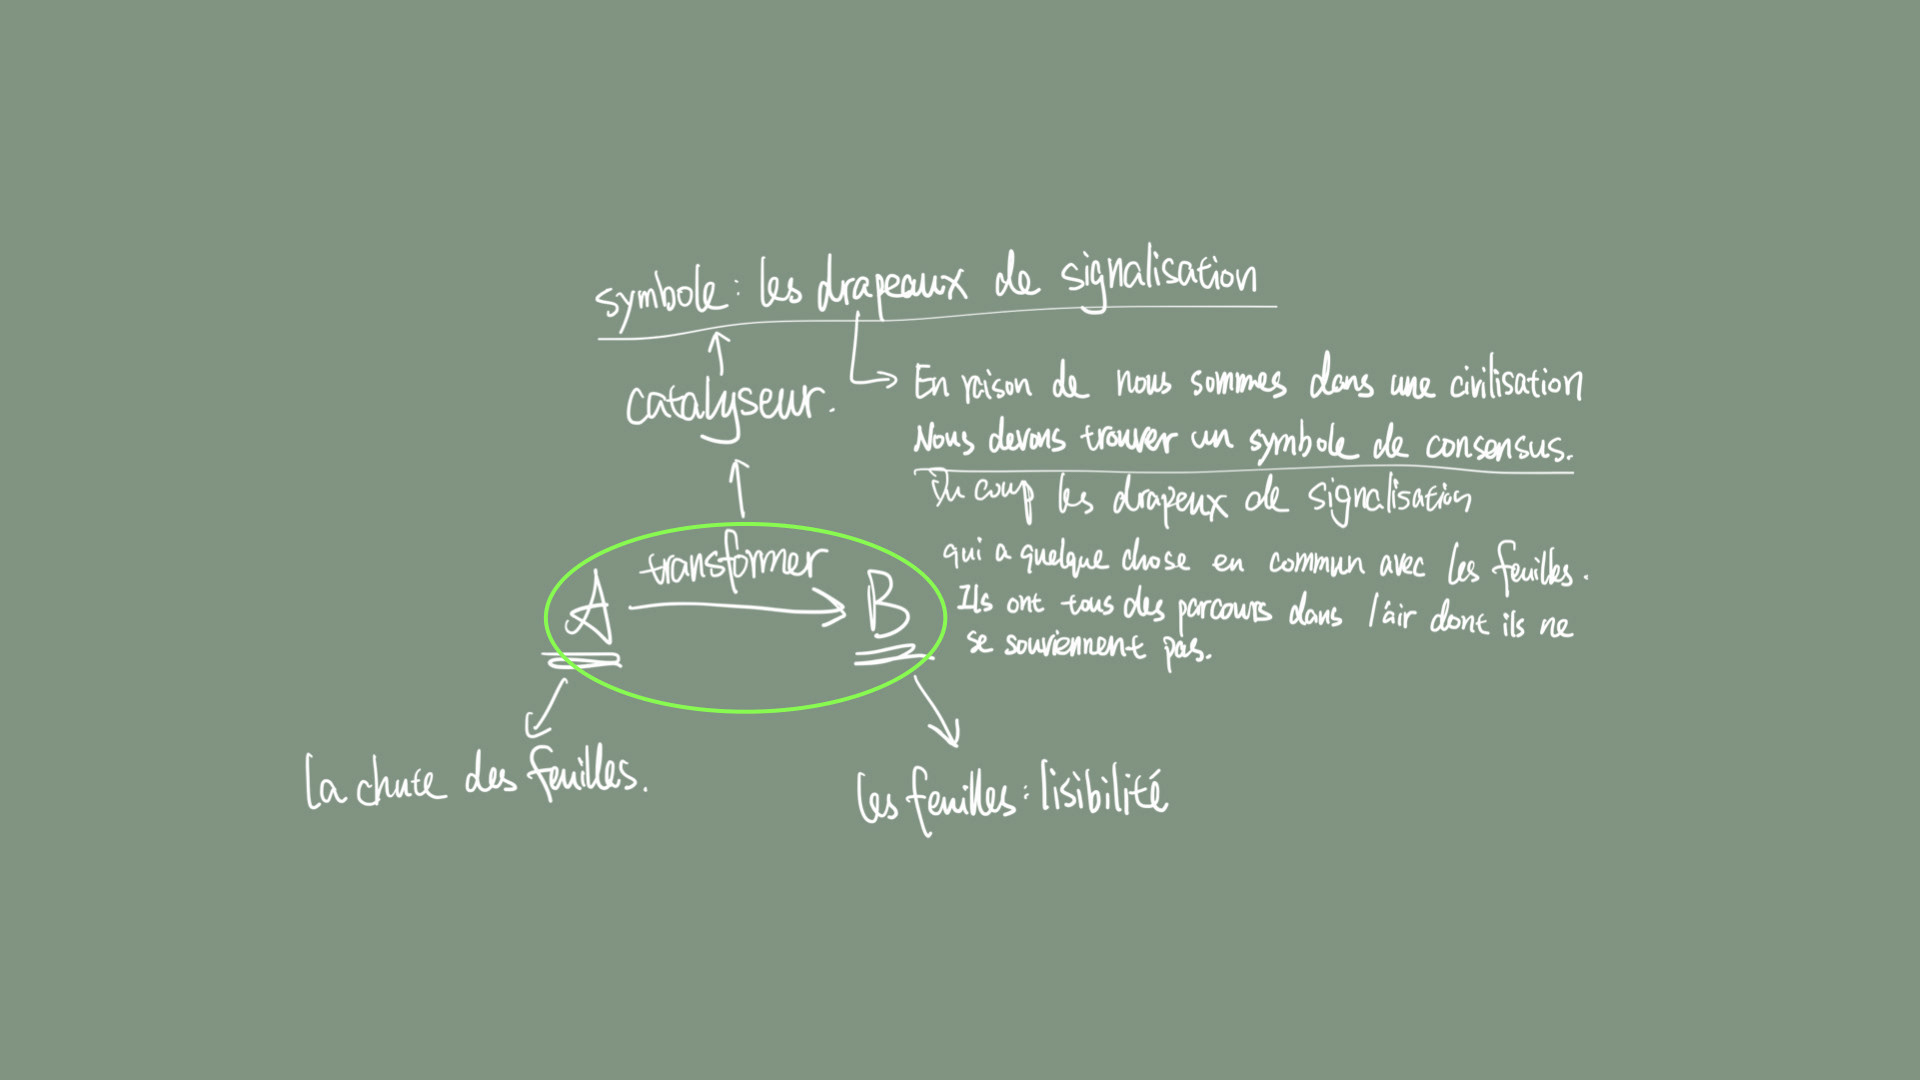 symbole : les drapeaux de signalisation
catalyseur.
En raison de nous sommes dans une civilisation
Nous devons trouver un symbole de consensus.
Du coup les drapeux de signalisation
qui a quelque chose en commun avec les feuilles.
Ils ont tous des parcours dans l'air dont ils ne
se souviennent pas.
transformer
A B
la chute des feuilles.
les feuilles : lisibilité